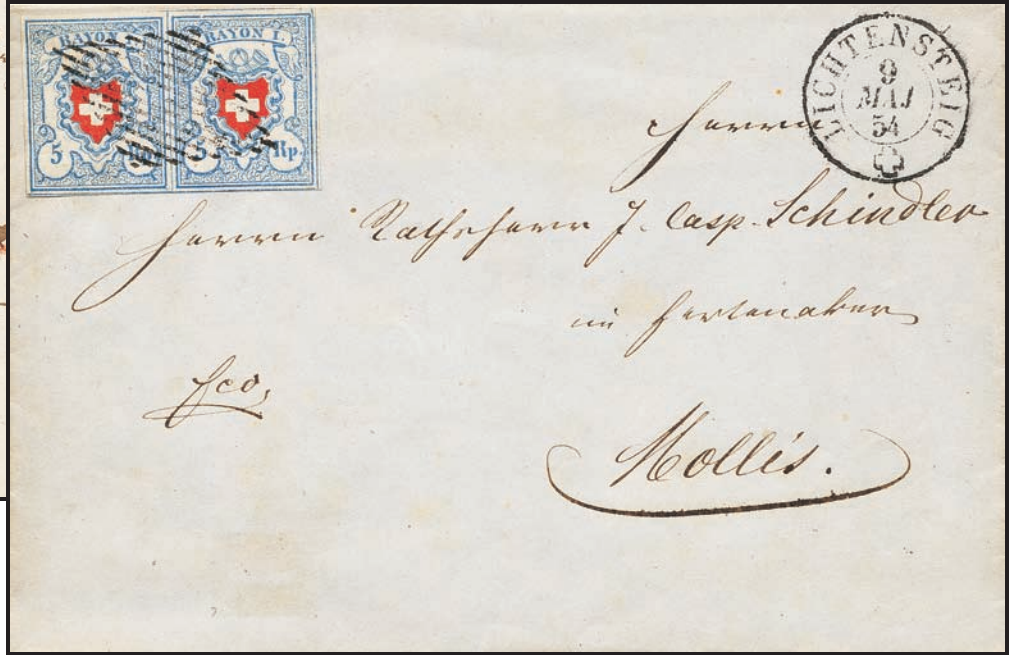 RAYON I. RAYON I.
5 Rp. 5 Rp.
LICHTENSTEIG
9
MAJ
54
Herrn
Herrn Rathsherr J. Casp. Schindler
im
fco,
Mollis.